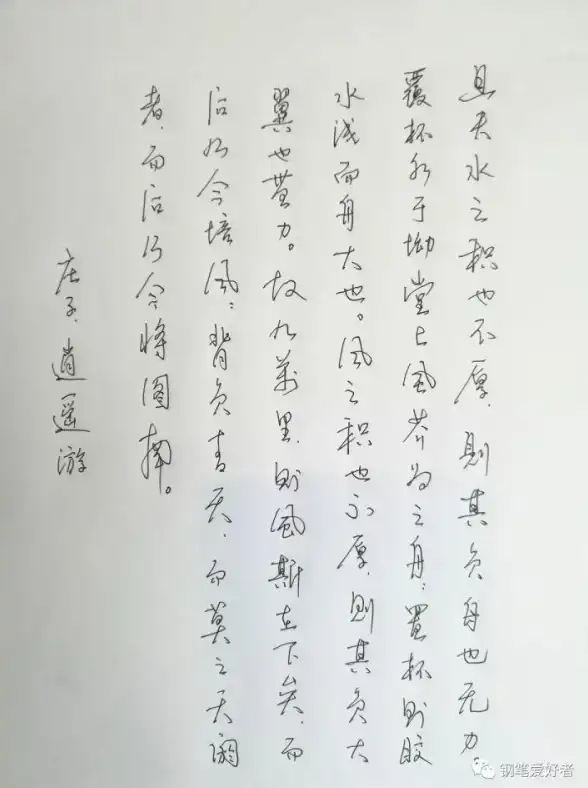 且夫水之积也不厚，则其负舟也无力。
覆杯水于坳堂上风芥为之舟；置杯则胶
水浅而舟大也。风之积也不厚，则其负大
翼也無力。故九萬里，则风斯在下矣，而
后乃今培风；背负青天，而莫之夭阏
者，而后乃今将图南。
庄子，逍遥游
钢笔爱好者